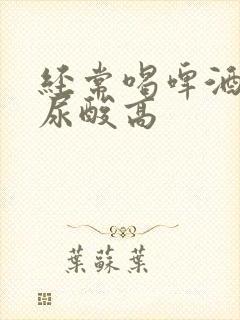 经常喝啤酒
尿酸高
葉蘇葉